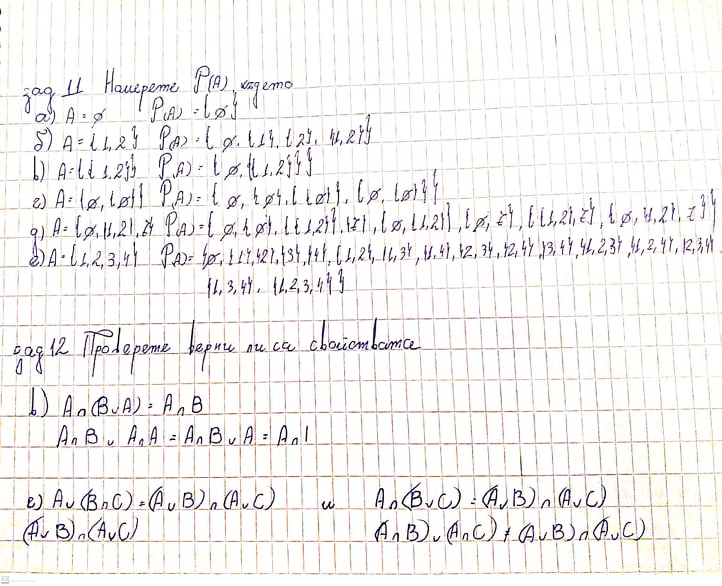 зад 11 Намерете P(A), където
а) A = ∅ P(A) = {∅}
б) A = {1,2} P(A) = {∅, {1}, {2}, {1,2}}
в) A = {{1,2}} P(A) = {∅, {{1,2}}}
г) A = {∅, {∅}} P(A) = {∅, {∅}, {{∅}}, {∅, {∅}}}
д) A = {∅, {1,2}, z} P(A) = {∅, {∅}, {{1,2}}, {z}, {∅, {1,2}}, {∅, z}, {{1,2}, z}, {∅, {1,2}, z}}
е) A = {1,2,3,4} P(A) = {∅, {1}, {2}, {3}, {4}, {1,2}, {1,3}, {1,4}, {2,3}, {2,4}, {3,4}, {1,2,3}, {1,2,4}, {2,3,4}
{1,3,4}, {1,2,3,4}}
зад 12 Проверете верни ли са свойствата
в) A∩(B∪A) = A∩B
A∩B ∪ A∩A = A∩B ∪ A = A∩1
е) A∪(B∩C) = (A∪B)∩(A∪C) и A∩(B∪C) = (A∪B)∩(A∪C)
(A∪B)∩(A∪C) (A∩B)∪(A∩C) ≠ (A∪B)∩(A∪C)